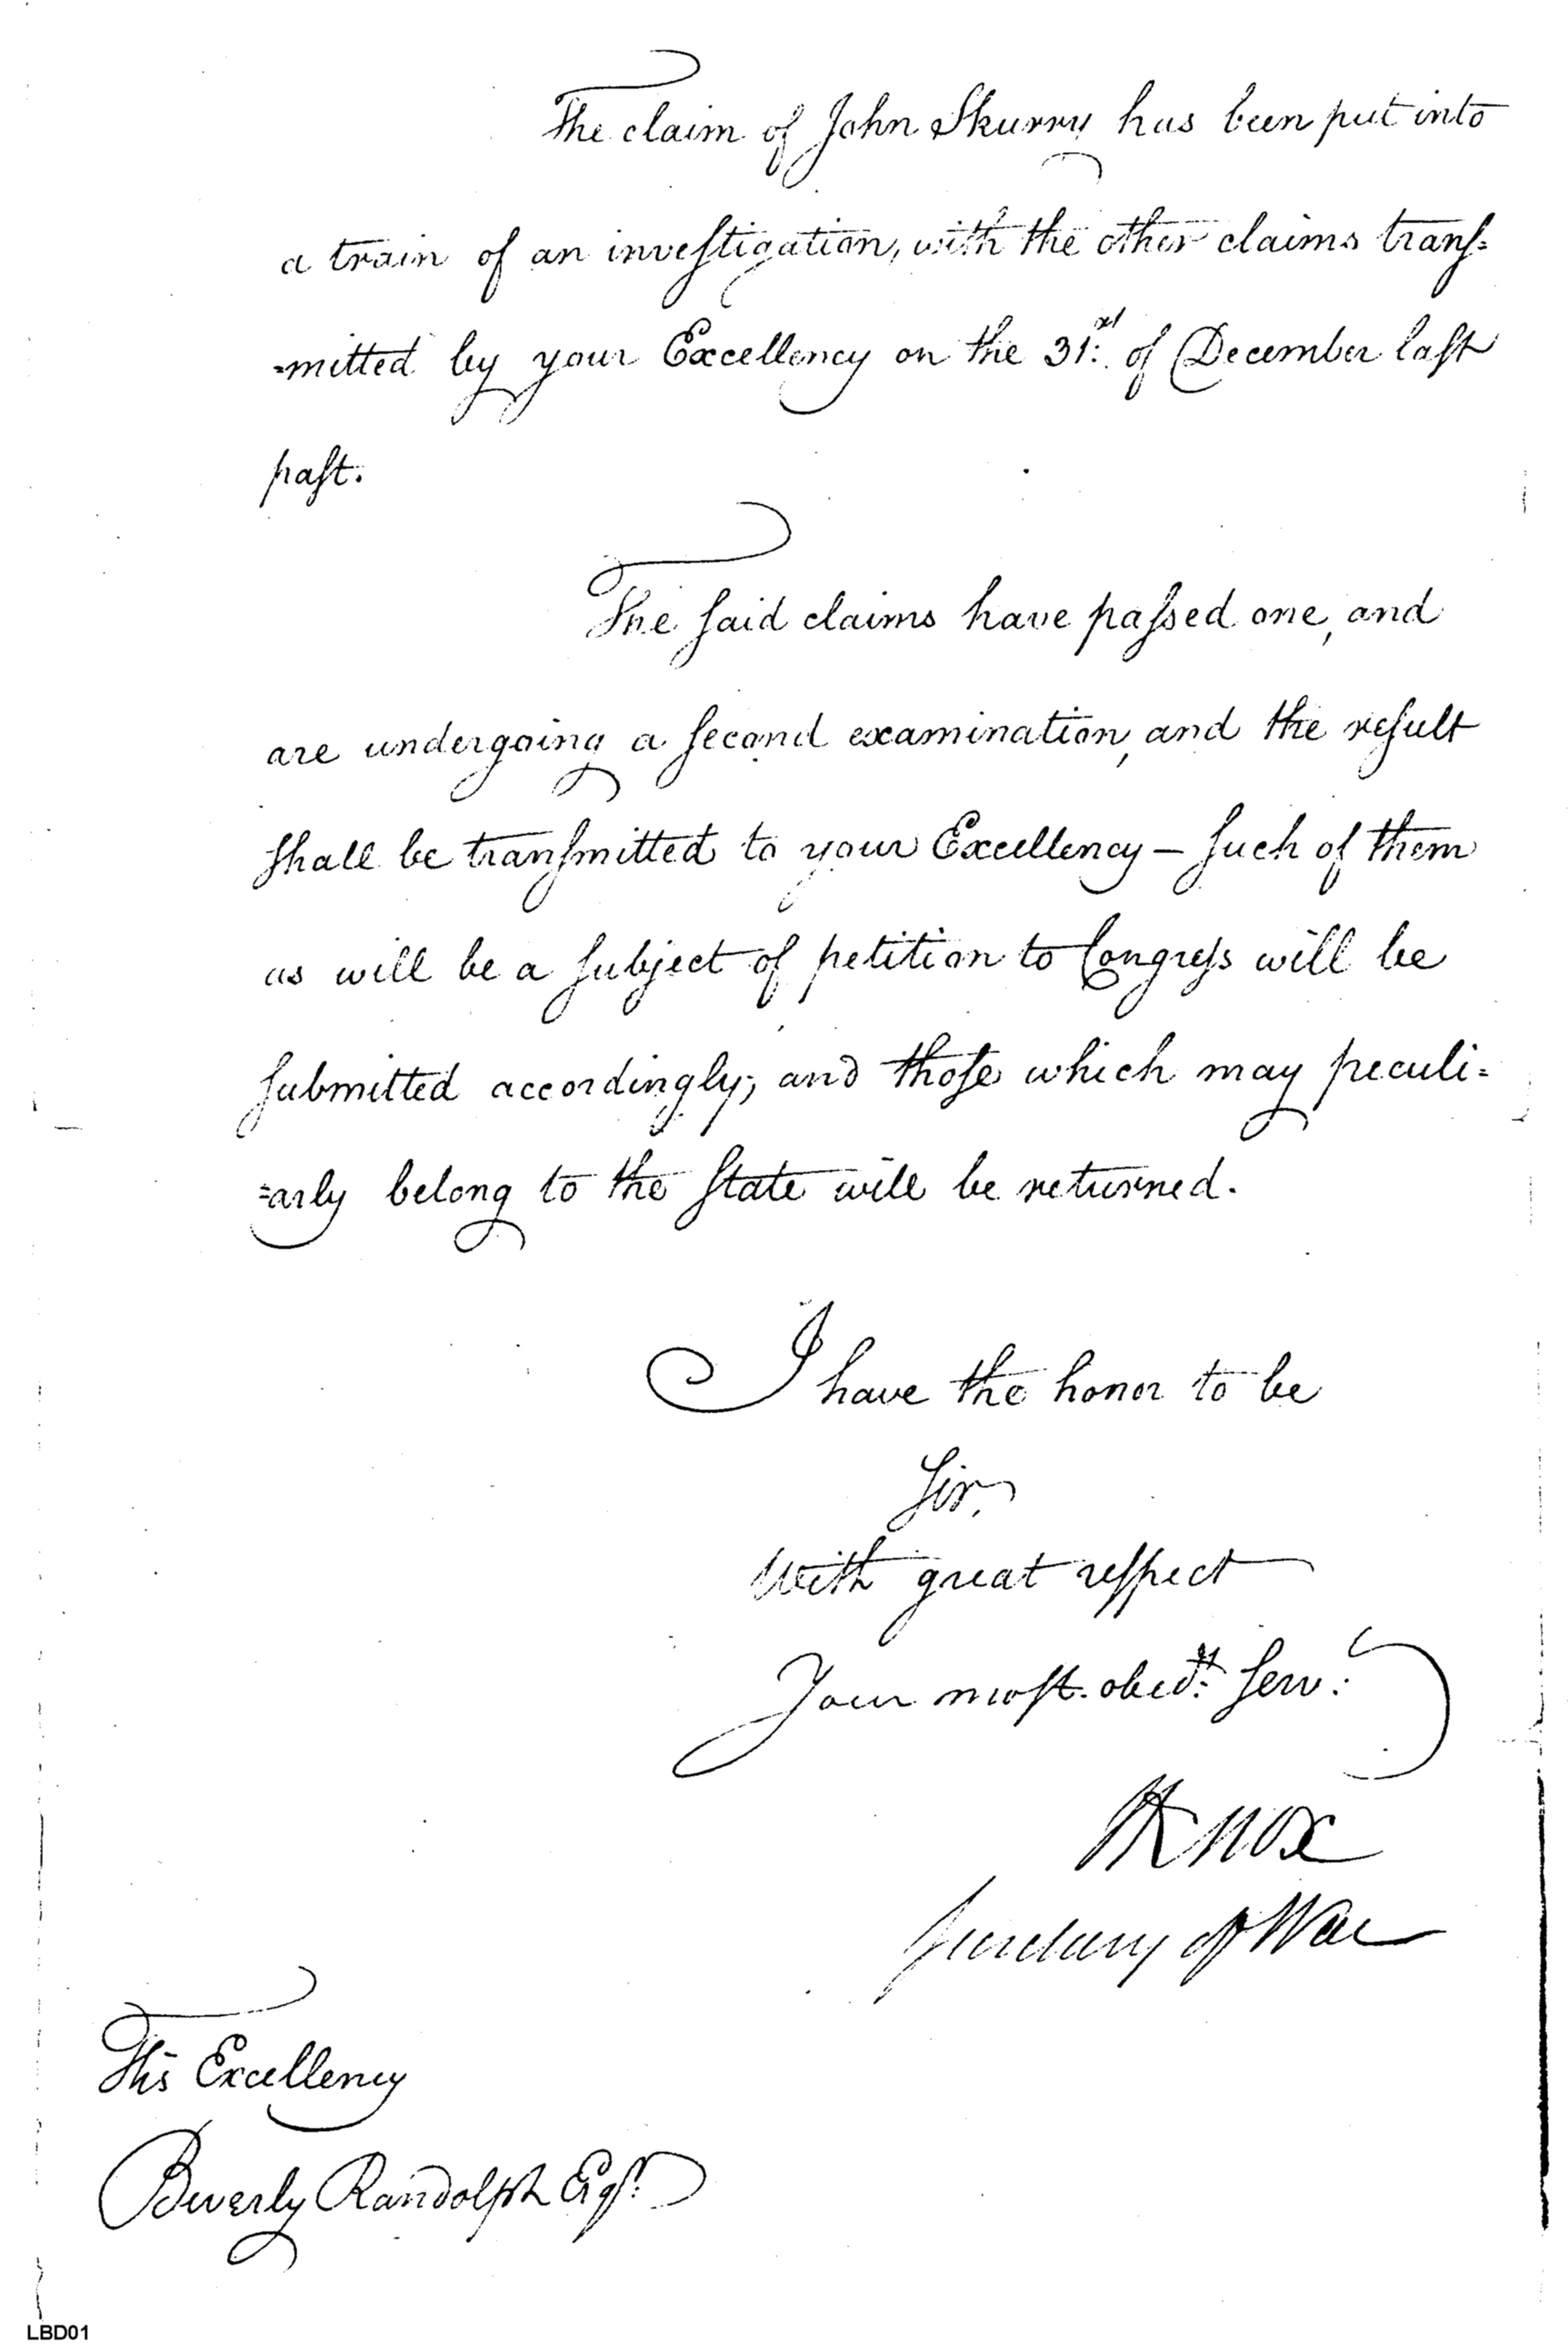 The claim of John Skurry has been put into
a train of an investigation, with the other claims trans=
=mitted by your Excellency on the 31st of December last
past.
The said claims have passed one, and
are undergoing a second examination, and the result
shall be transmitted to your Excellency – such of them
as will be a subject of petition to Congress will be
submitted accordingly; and those which may peculi=
=arly belong to the State will be returned.
I have the honor to be
Sir,
With great respect
Your most obedt. Serv.
HKnox
Secretary of War
His Excellency
Beverly Randolph Esqr.
LBD01